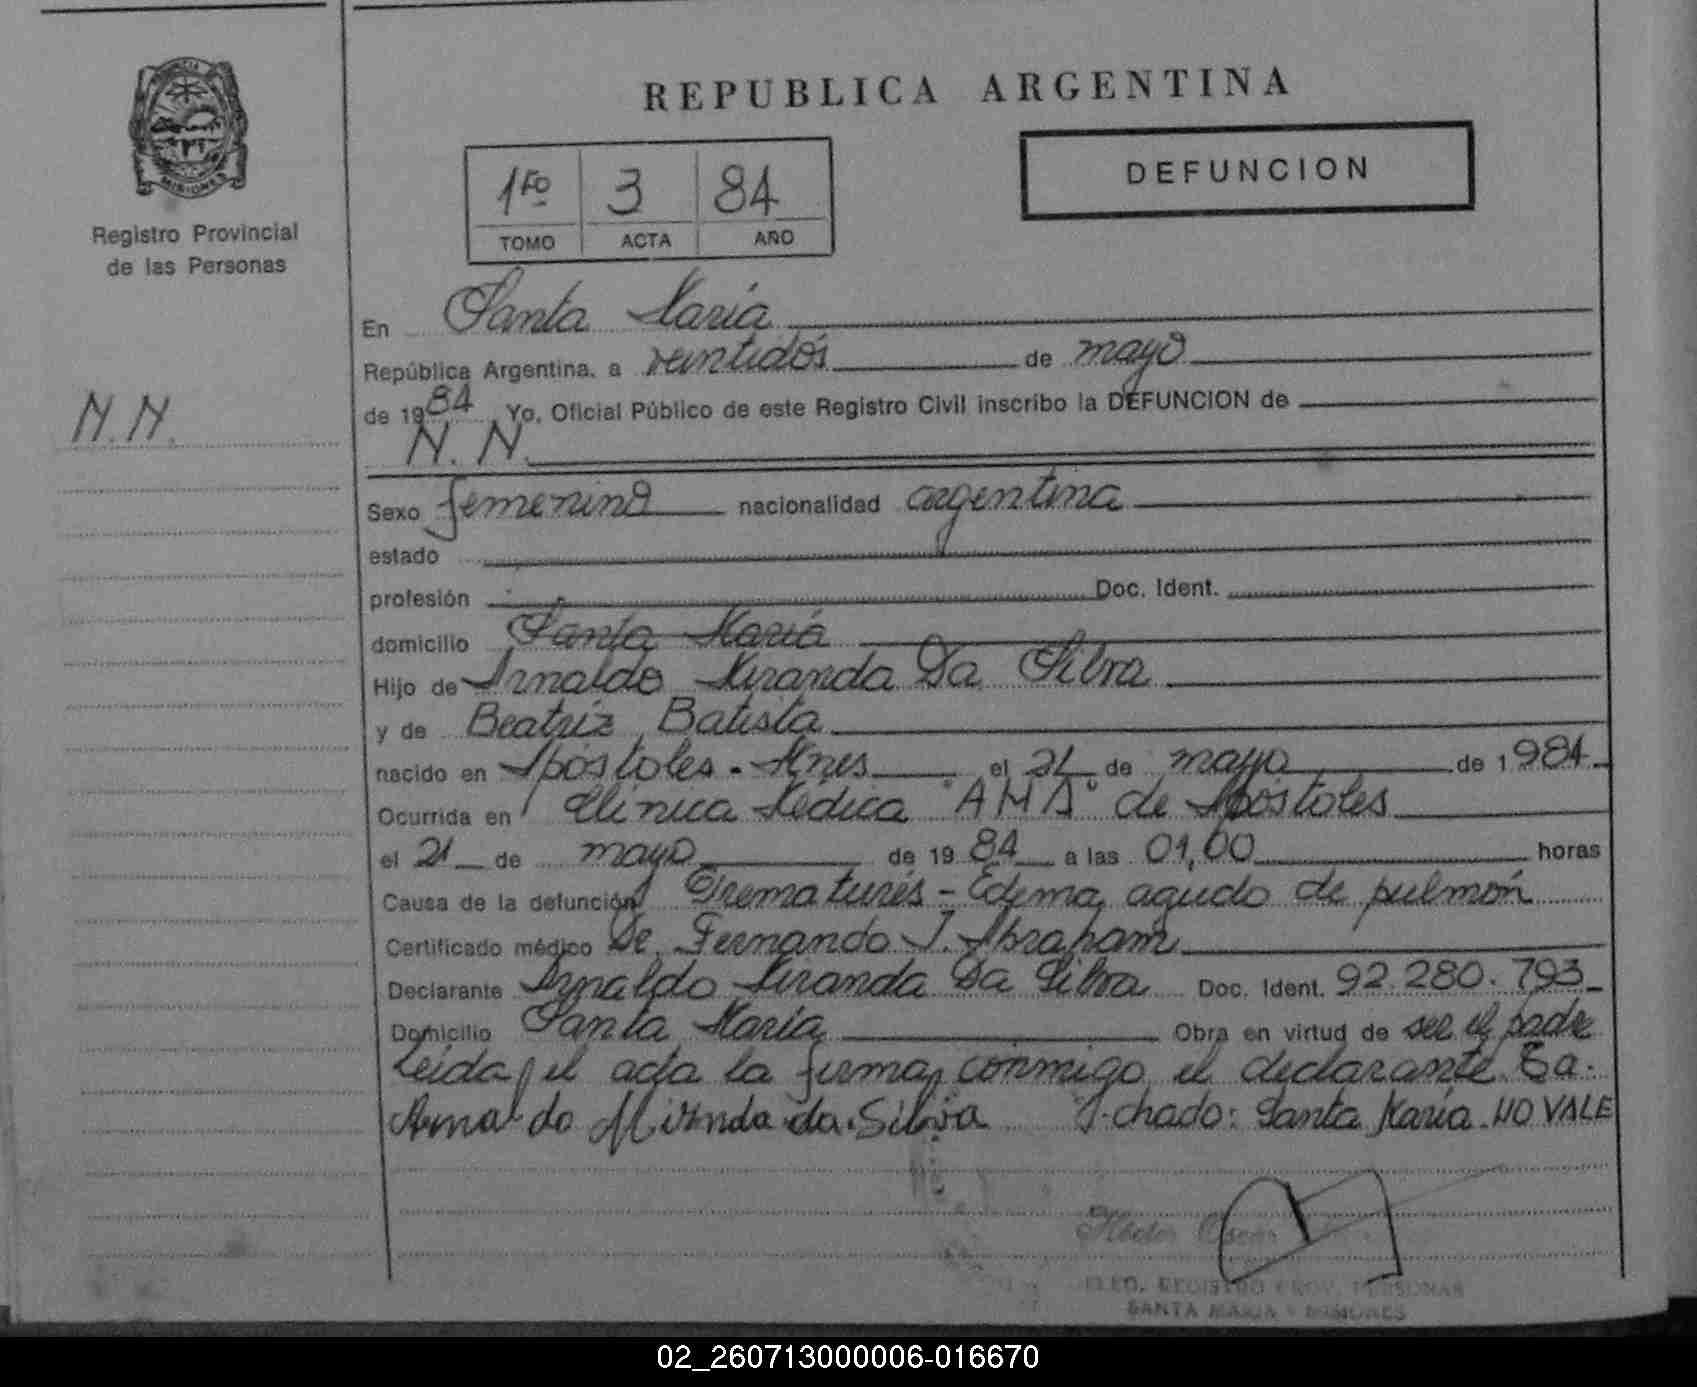 REPUBLICA ARGENTINA
DEFUNCION
PROVINCIA DE
MISIONES
Registro Provincial
de las Personas
1ro 3 84
TOMO ACTA AÑO
En Santa María
República Argentina, a veintidós de mayo
de 1984 Yo, Oficial Público de este Registro Civil inscribo la DEFUNCION de
N.N.
N. N.
Sexo femenino nacionalidad argentina
estado
profesión Doc. Ident.
domicilio Santa María
Hijo de Arnaldo Miranda Da Silva
y de Beatriz Batista
nacido en Apóstoles - Mnes el 21 de mayo de 1984
Ocurrida en Clínica Médica "AMA" de Apóstoles
el 21 de mayo de 1984 a las 01,00 horas
Causa de la defunción Prematurés - Edema agudo de pulmón
Certificado médico Dr. Fernando J. Abraham
Declarante Arnaldo Miranda Da Silva Doc. Ident. 92.280.793
Domicilio Santa María Obra en virtud de ser el padre
Leida el acta la firma conmigo el declarante Ta-
Arnaldo Miranda da Silva chado: Santa María. NO VALE
Héctor Oscar
REGISTRO PROV. PERSONAS
SANTA MARIA - MISIONES
02_260713000006-016670